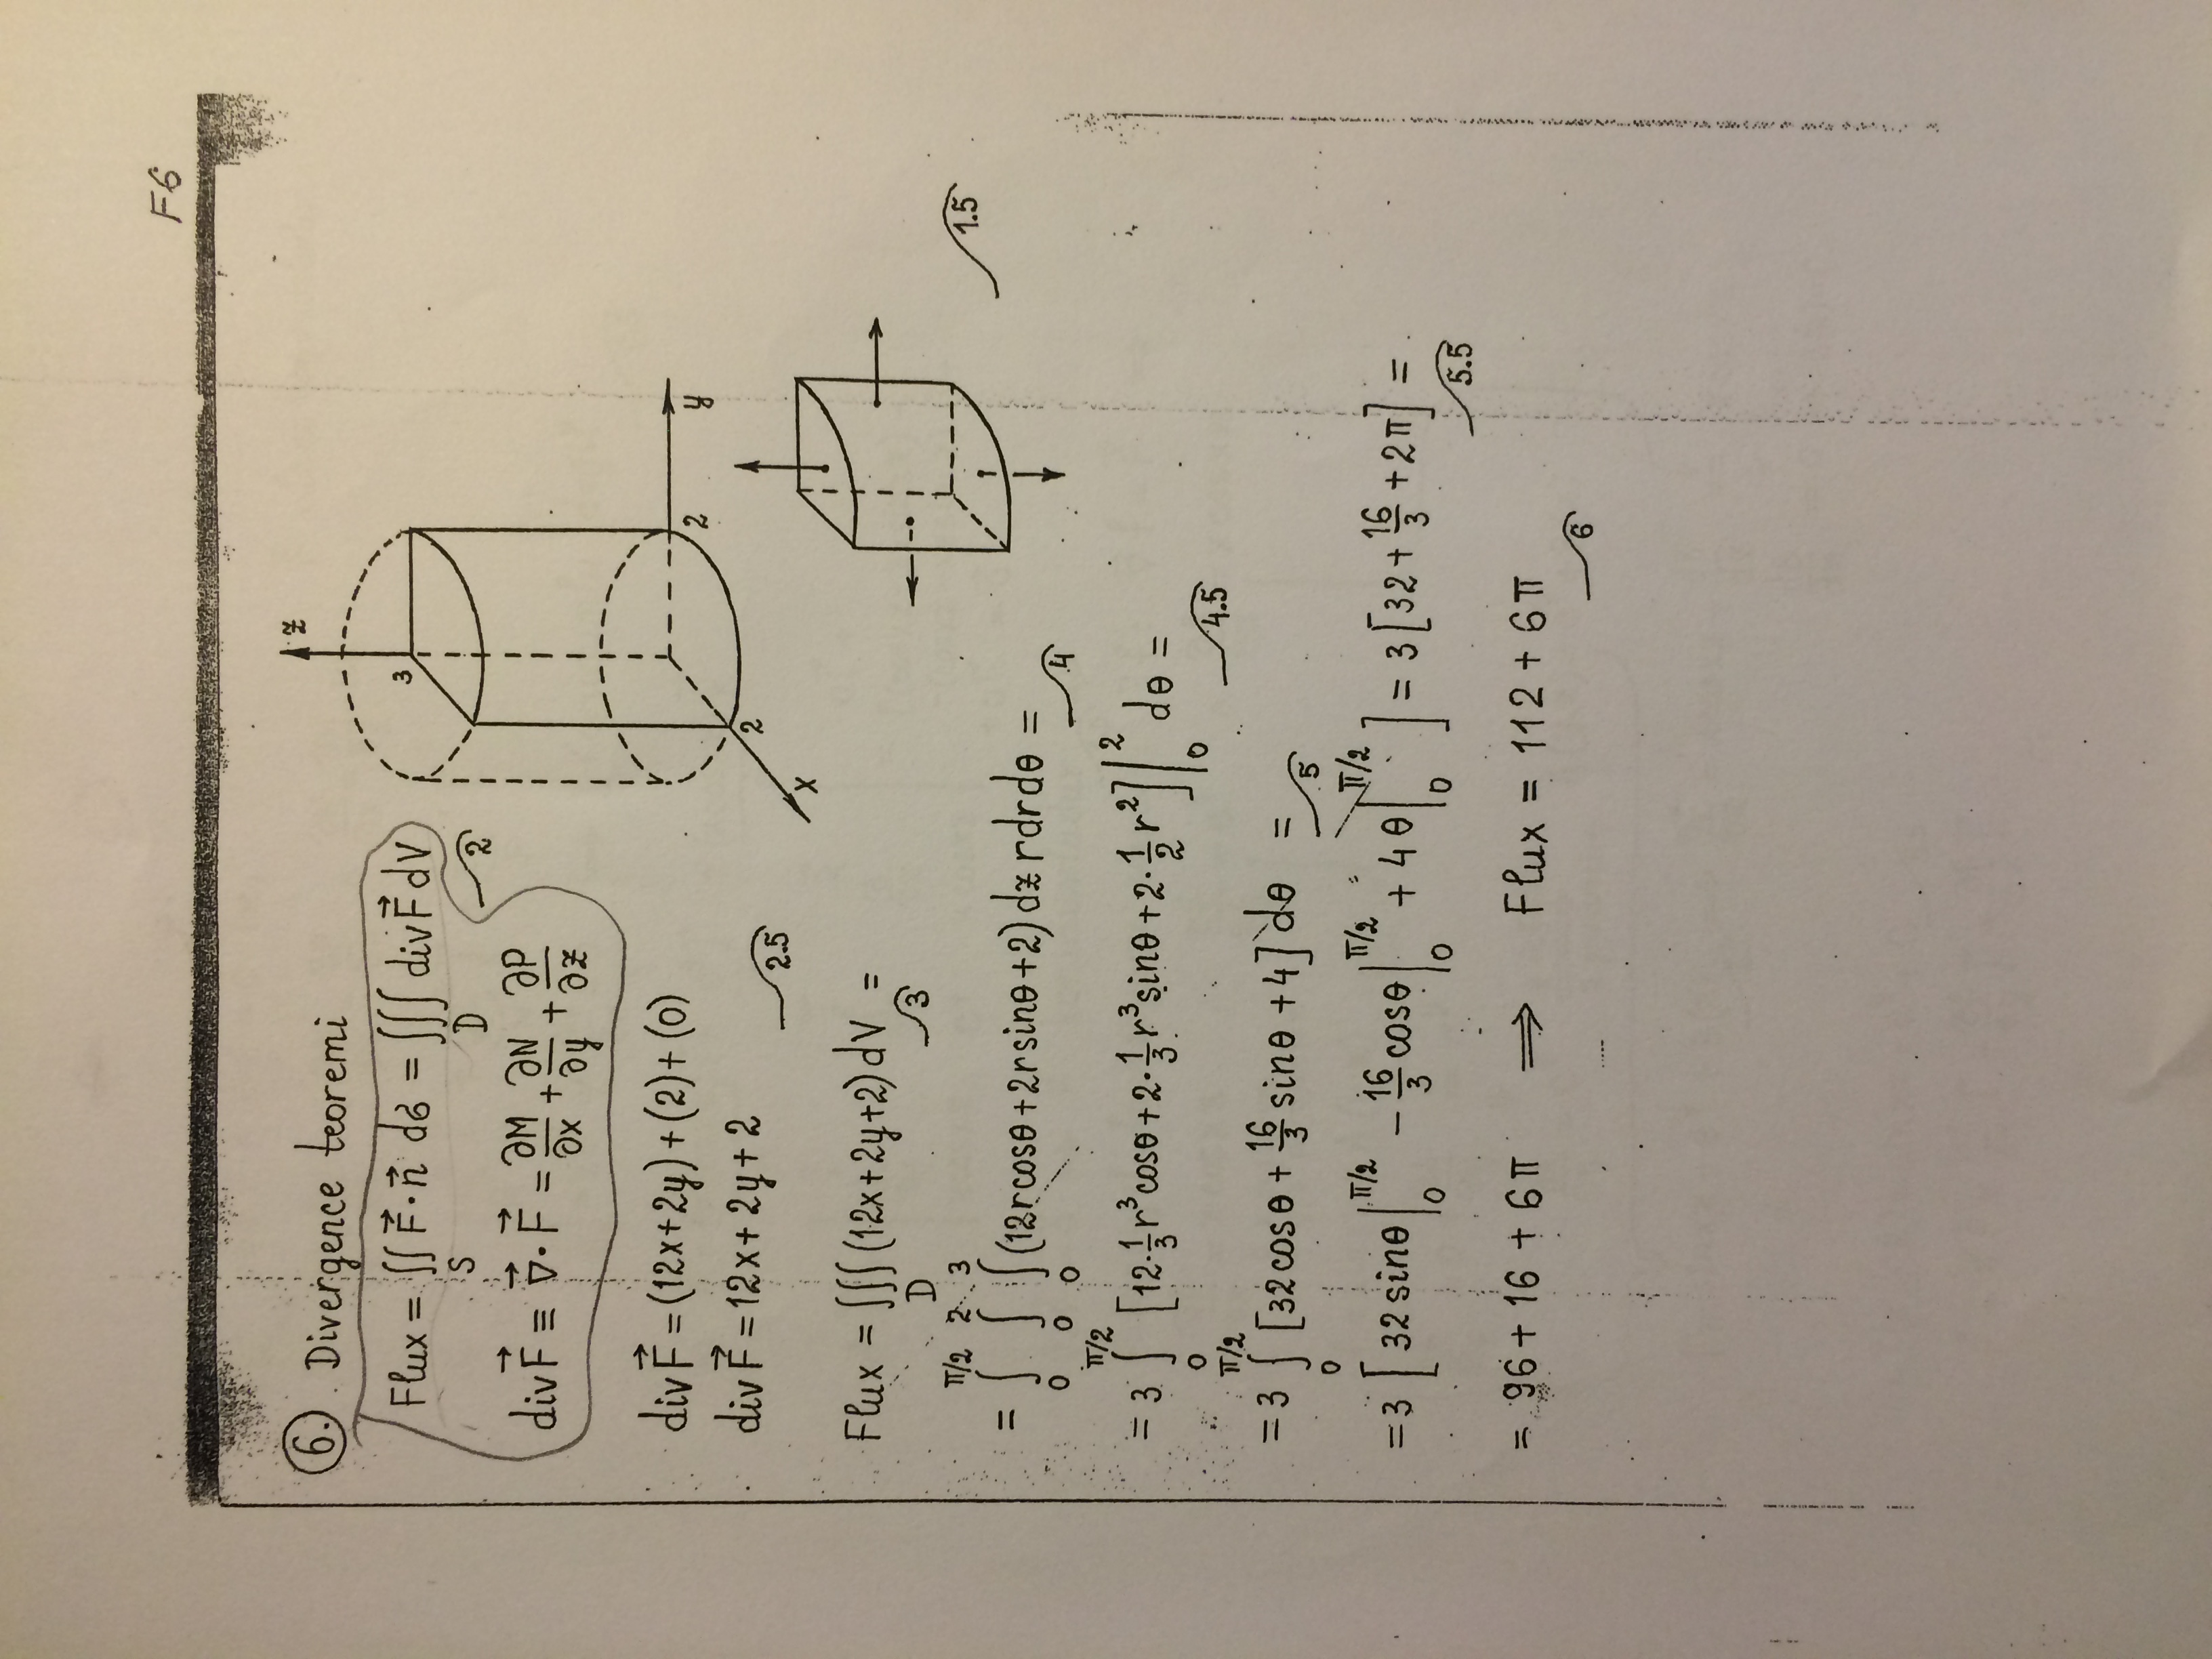 F6
6. Divergence teoremi
Flux = ∬_S F⃗·n⃗ dσ = ∭_D div F⃗ dV
2
div F⃗ ≡ ∇⃗·F⃗ = ∂M/∂x + ∂N/∂y + ∂P/∂z
div F⃗ = (12x+2y)+(2)+(0)
div F⃗ = 12x+2y+2
2.5
z
3
2
y
2
x
1.5
Flux = ∭_D (12x+2y+2) dV =
3
= ∫_0^{π/2} ∫_0^2 ∫_0^3 (12rcosθ+2rsinθ+2) dz rdrdθ =
4
= 3 ∫_0^{π/2} [12·1/3 r³cosθ+2·1/3 r³sinθ+2·1/2 r²]|_0^2 dθ =
4.5
= 3 ∫_0^{π/2} [32cosθ + 16/3 sinθ + 4] dθ =
5
= 3 [32 sinθ|_0^{π/2} − 16/3 cosθ|_0^{π/2} + 4θ|_0^{π/2}] = 3[32 + 16/3 + 2π] =
5.5
= 96 + 16 + 6π ⟹ Flux = 112 + 6π
6